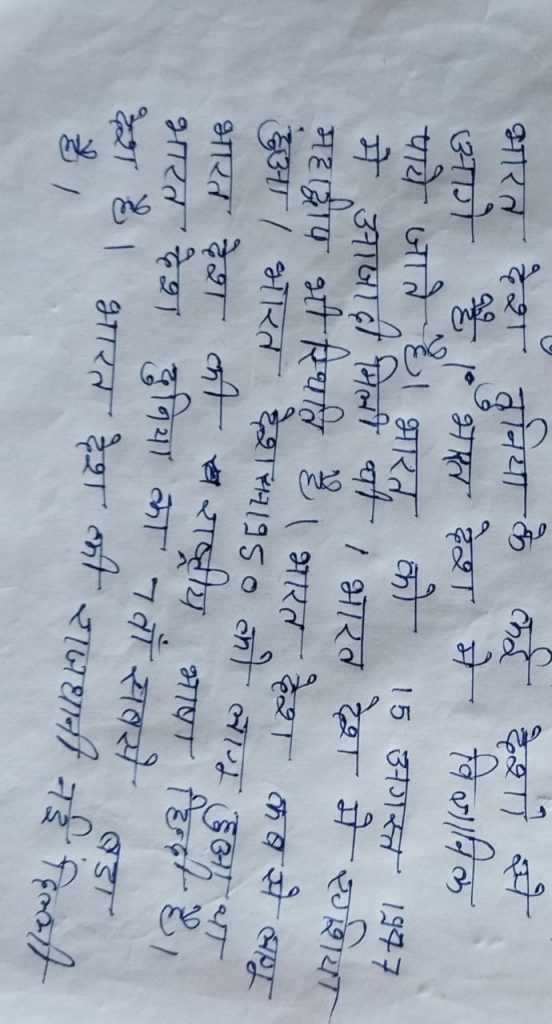 भारत देश दुनिया के कई देशो से
आगे है। भारत देश मे विज्ञानिक
पाये जाते है। भारत को 15 अगस्त 1947
मे आजादी मिली थी। भारत देश मे एशिया
महाद्वीप भी स्थिति है। भारत देश कब से लागु
हुआ। भारत देश सन 1950 को लागु हुआ था
भारत देश की राष्ट्रीय भाषा हिन्दी है।
भारत देश दुनिया का 7 वाँ सबसे बडा
देश है। भारत देश की राजधानी नई दिल्ली
है।